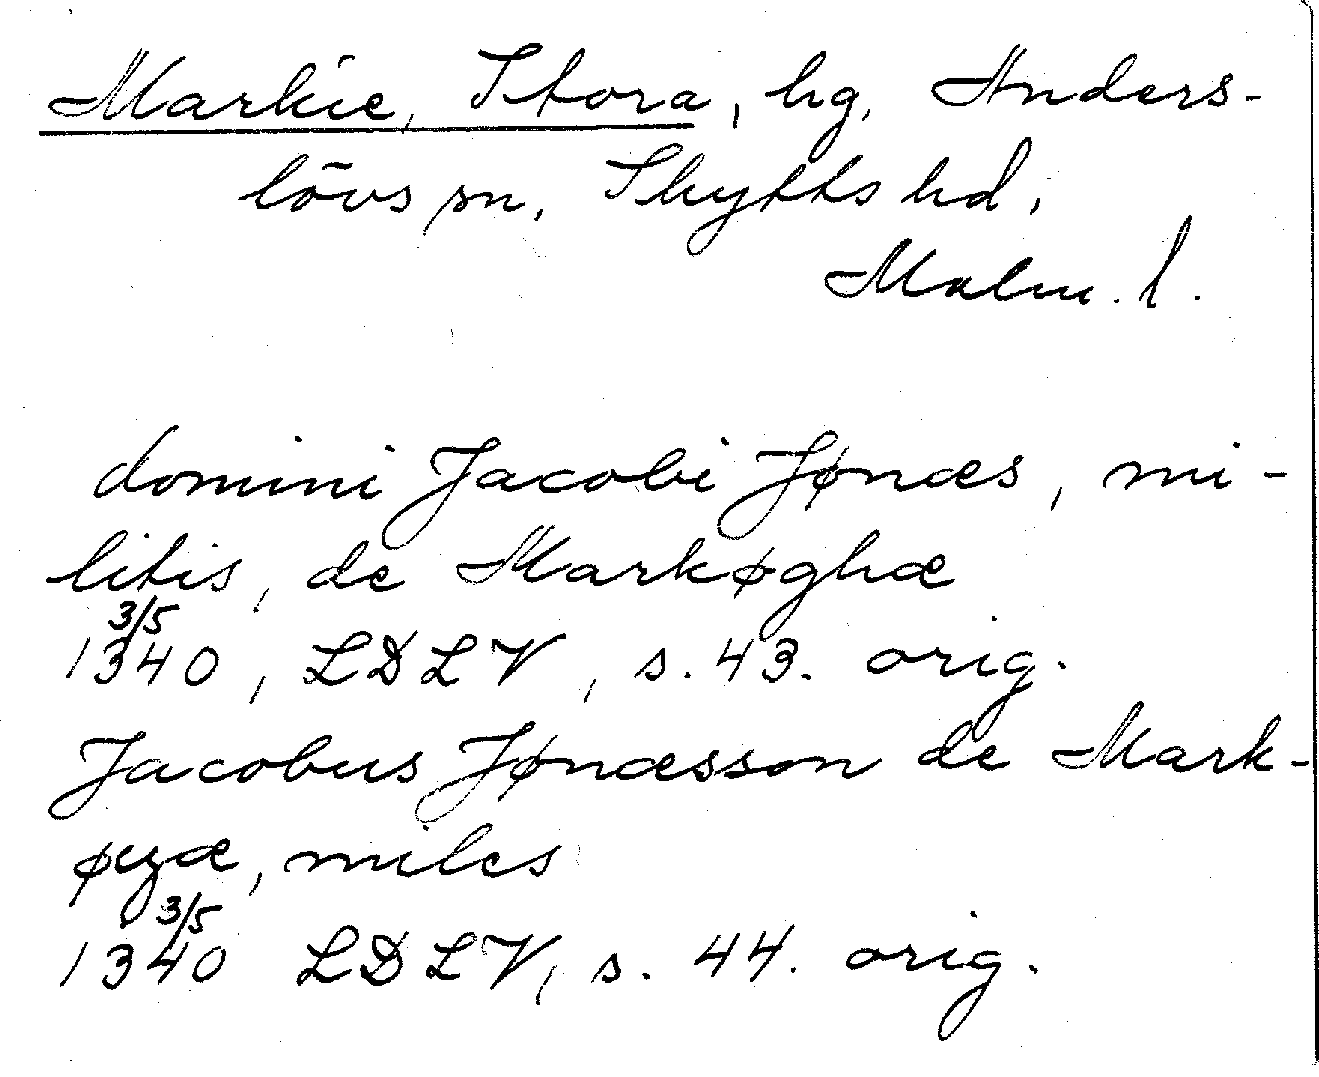 Markie, Stora, hg, Anders-
lövs sn, Skytts hd,
Malm. l.
domini Jacobi Jønæs, mi-
litis, de Markøghæ
3/5
1340, LDLV, s. 43. orig.
Jacobus Jønæsson de Mark-
øyæ, miles
3/5
1340 LDLV, s. 44. orig.